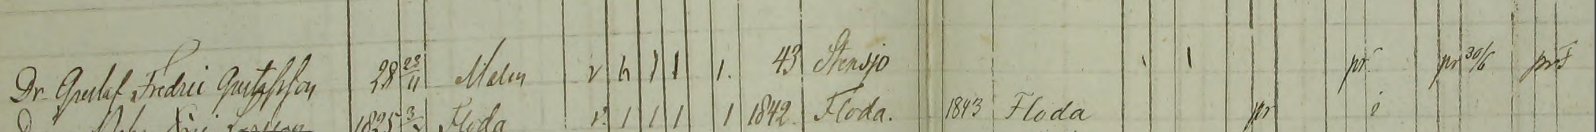 Dr. Gustaf Fredric Gustafsson 28 23/11 Malm v h 1 1 1. 43 Stensjö 1 1 pr pr 30/6 pr
1825 3 Floda v. 1 1 1 1 1842 Floda. 1843 Floda pr